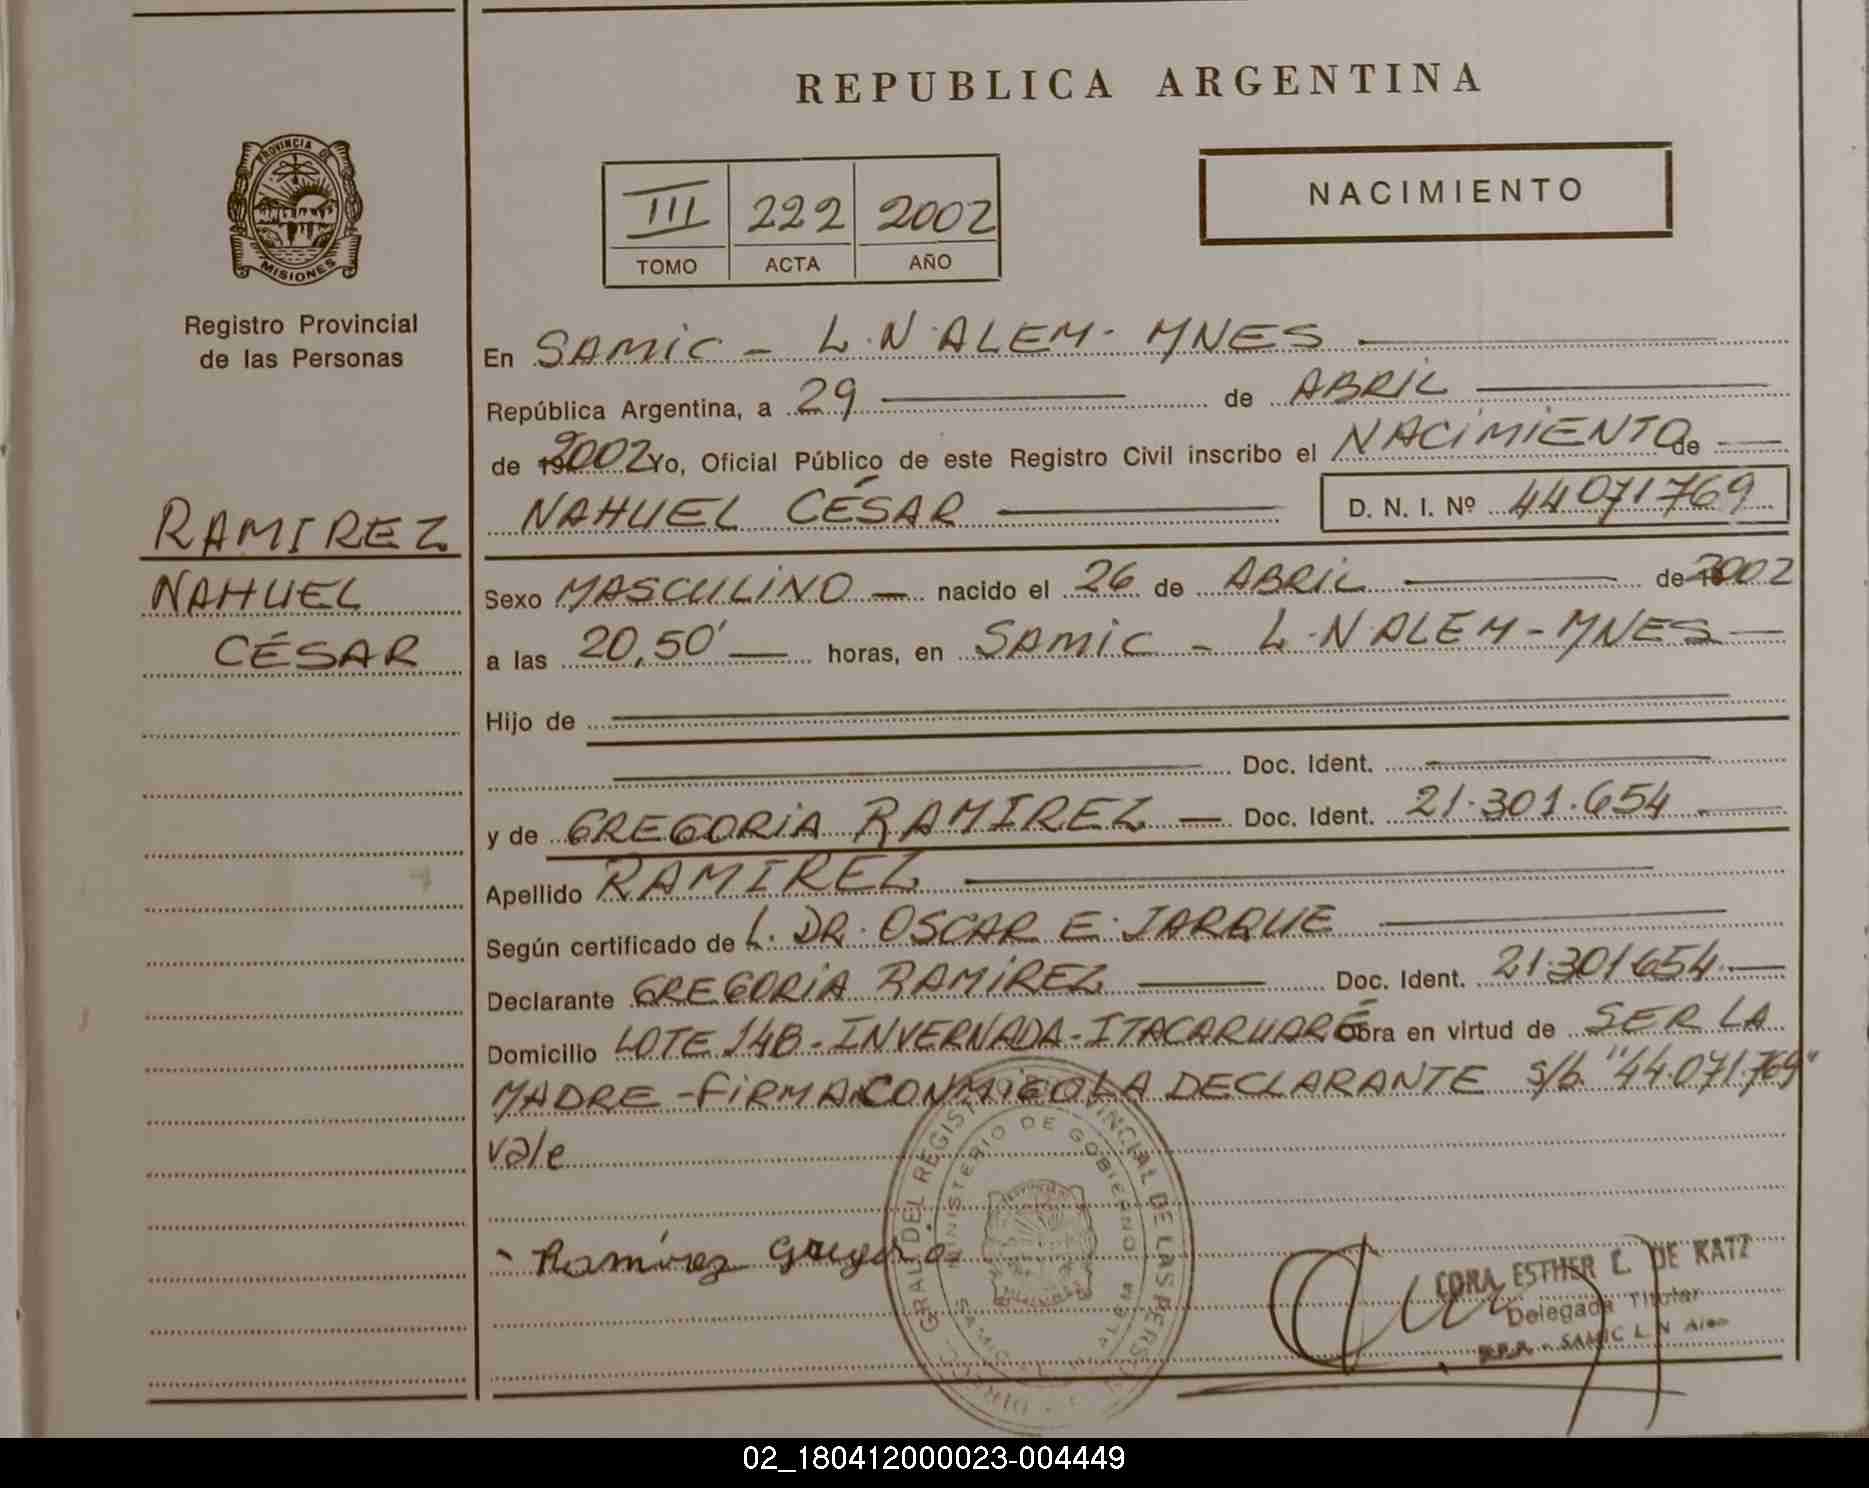 REPUBLICA ARGENTINA
PROVINCIA DE
MISIONES
Registro Provincial
de las Personas
III 222 2002
TOMO ACTA AÑO
NACIMIENTO
RAMIREZ
NAHUEL
CÉSAR
En SAMIC - L.N.ALEM - MNES
República Argentina, a 29 de ABRIL
de 2002 Yo, Oficial Público de este Registro Civil inscribo el NACIMIENTO de
NAHUEL CÉSAR D. N. I. Nº 44071769
Sexo MASCULINO nacido el 26 de ABRIL de 2002
a las 20,50' horas, en SAMIC - L.N.ALEM - MNES
Hijo de
Doc. Ident.
y de GREGORIA RAMIREZ Doc. Ident. 21.301.654
Apellido RAMIREZ
Según certificado de L. DR. OSCAR E. JARQUE
Declarante GREGORIA RAMIREZ Doc. Ident. 21.301654
Domicilio LOTE 14B - INVERNADA - ITACARUARÉ Obra en virtud de SER LA
MADRE - FIRMA CONMIGO LA DECLARANTE s/b "44.071.769"
vale
Ramirez Gregoria
GRAL. DEL REGISTRO PROVINCIAL DE LAS PERS
MINISTERIO DE GOBIERNO
SAMIC L. N. ALEM
CDRA. ESTHER C. DE KATZ
Delegada Titular
R.P.P. - SAMIC L. N. Alem
02_180412000023-004449